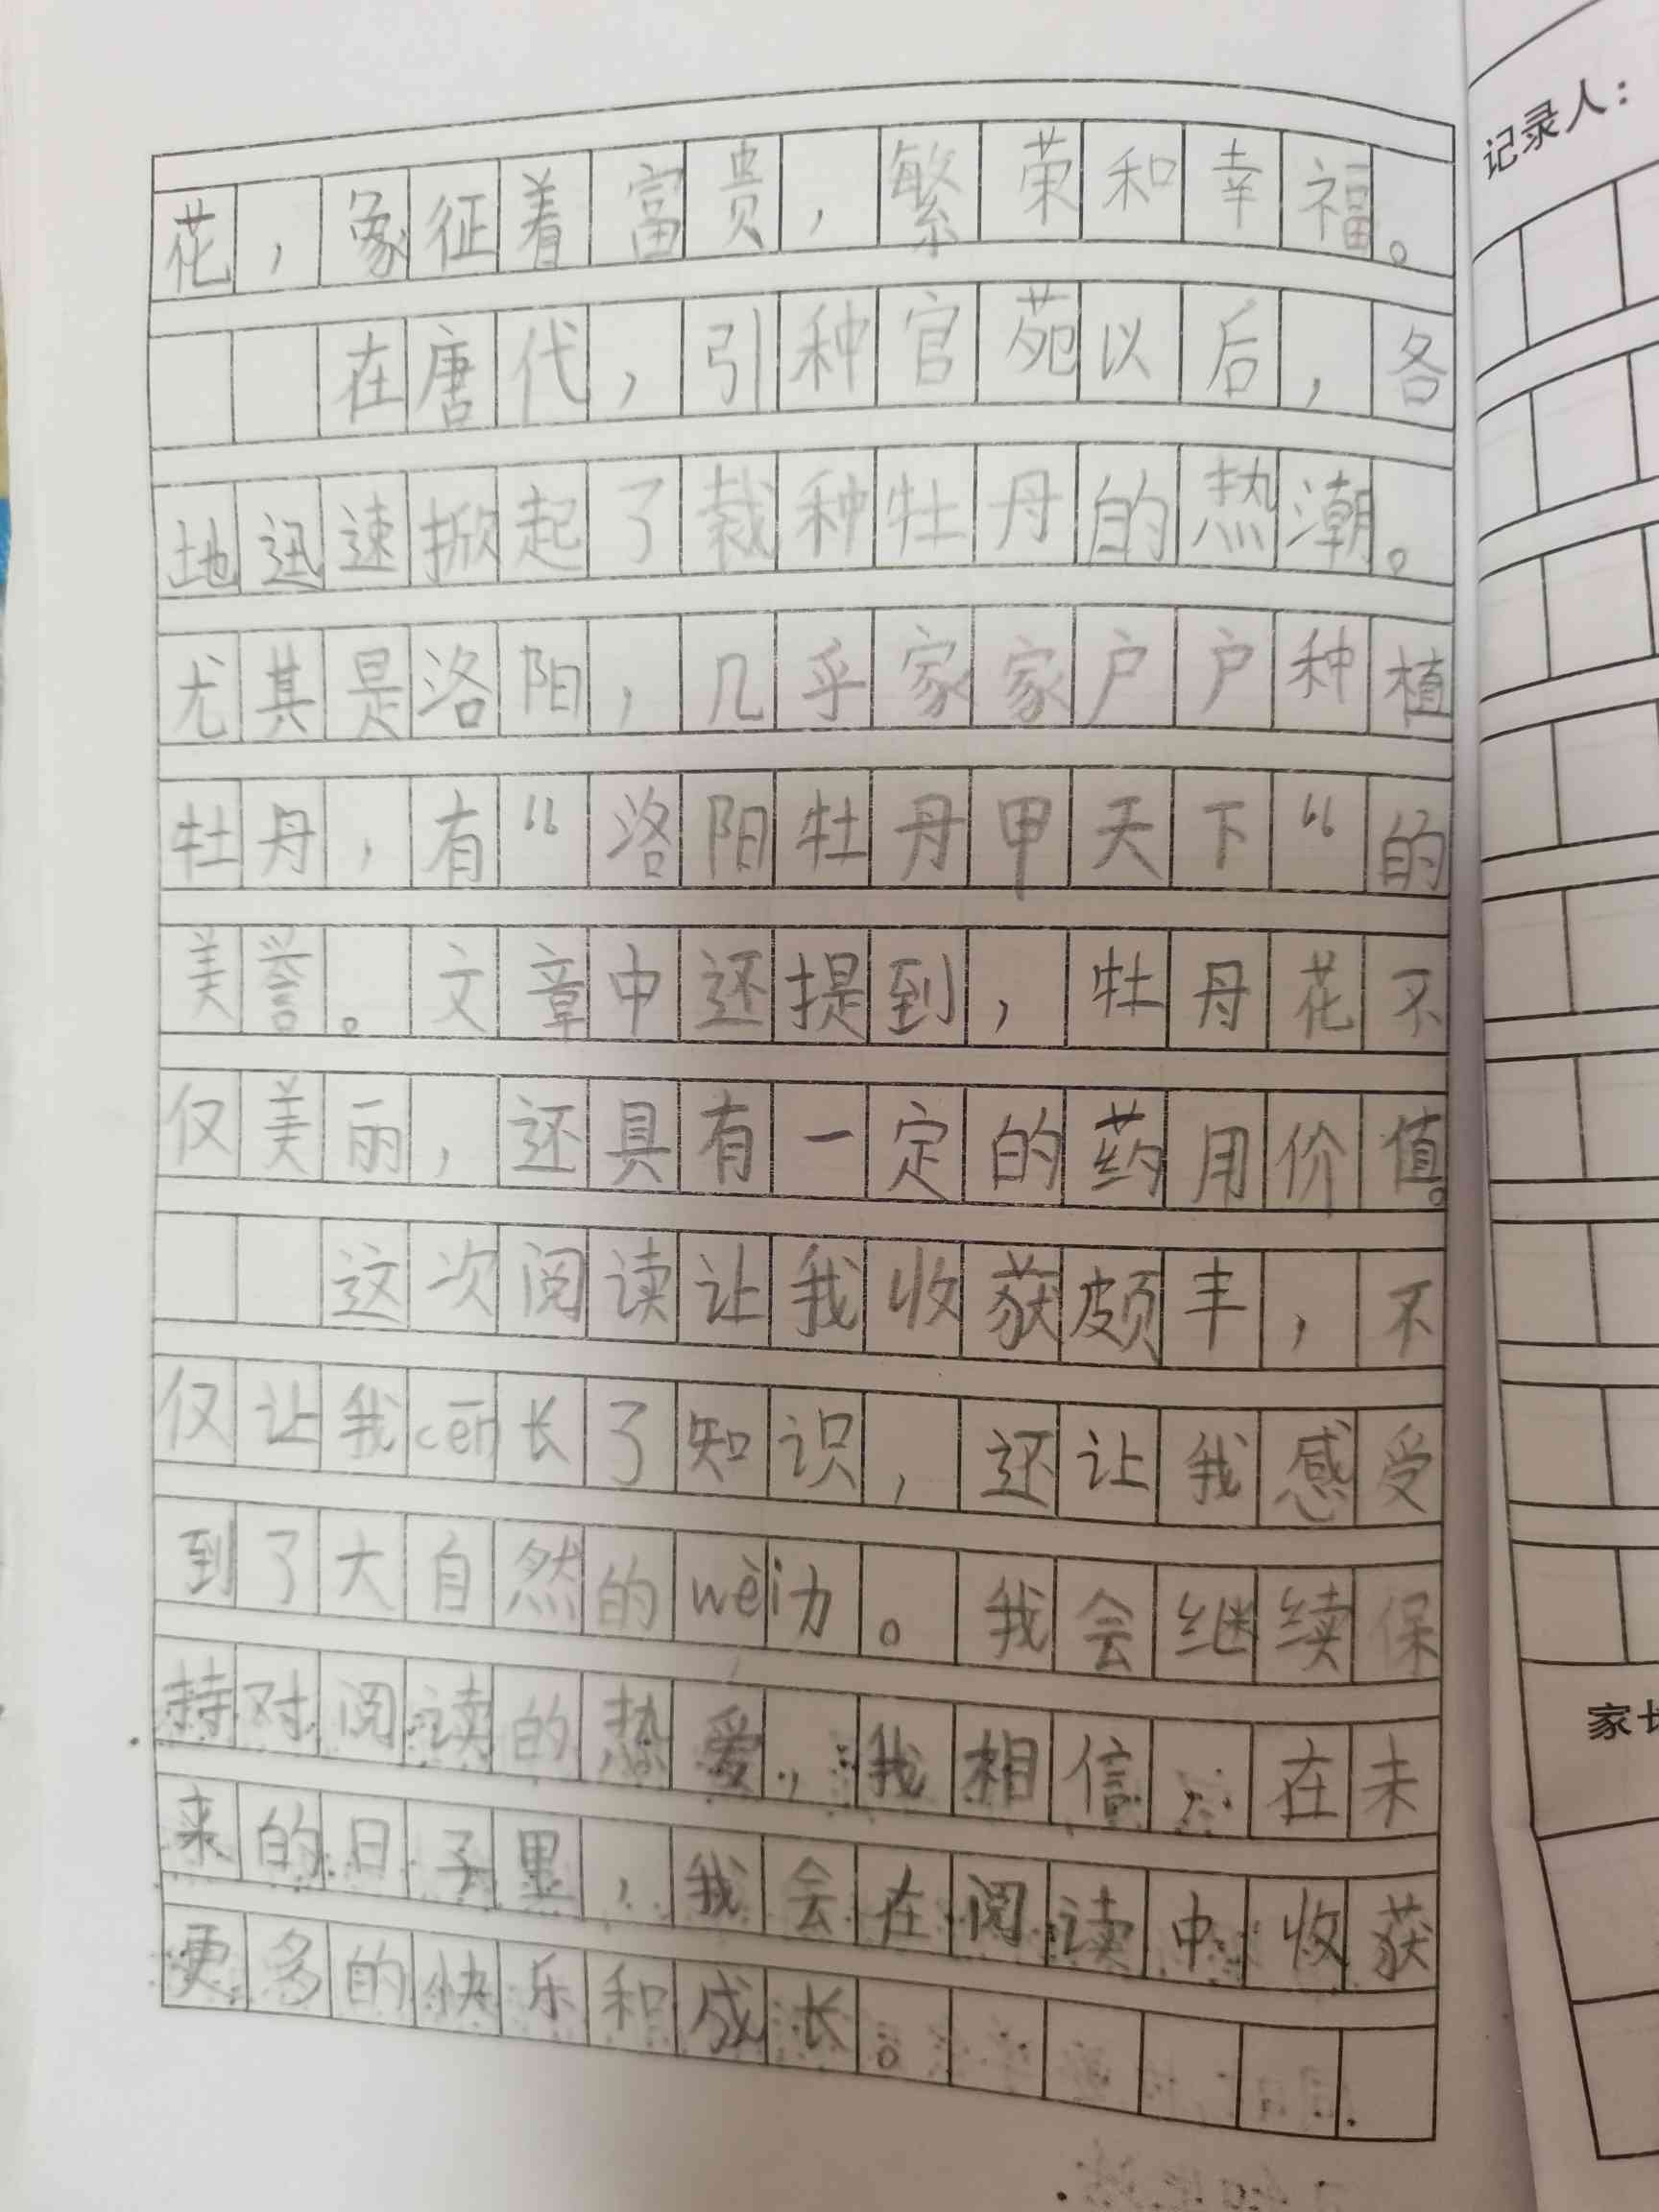 花，象征着富贵，繁荣和幸福。
在唐代，引种官苑以后，各
地迅速掀起了栽种牡丹的热潮。
尤其是洛阳，几乎家家户户种植
牡丹，有“洛阳牡丹甲天下“的
美誉。文章中还提到，牡丹花不
仅美丽，还具有一定的药用价值。
这次阅读让我收获颇丰，不
仅让我cēn长了知识，还让我感受
到了大自然的wèi力。我会继续保
持对阅读的热爱，我相信，在未
来的日子里，我会在阅读中收获
更多的快乐和成长。
记录人：
家长